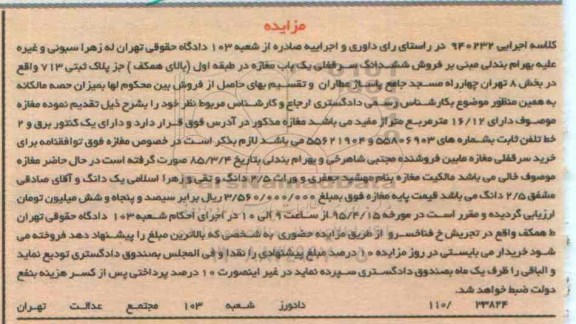 مزایده
کلاسه اجرایی ۹۴۰۲۳۲ در راستای رای داوری و اجراییه صادره از شعبه ۱۰۳ دادگاه حقوقی تهران له زهرا سبونی و غیره
علیه بهرام بندلی مبنی بر فروش ششدانگ سرقفلی یک باب مغازه در طبقه اول (بالای همکف) جز پلاک ثبتی ۷۱۳ واقع
در بخش ۸ تهران چهارراه مسجد جامع پاساژ عطاران و تقسیم بهای حاصل از فروش بین محکوم لها بمیزان حصه مالکانه
به همین منظور موضوع بکارشناس رسمی دادگستری ارجاع و کارشناس مربوط نظر خود را بشرح ذیل تقدیم نموده مغازه
موصوف دارای ۱۶/۱۲ مترمربع متراژ مفید می باشد مغازه مذکور در آدرس فوق قرار دارد و دارای یک کنتور برق و ۲
خط تلفن ثابت بشماره های ۵۵۸۰۶۹۰۳ و ۵۵۶۲۱۹۰۴ می باشد لازم بذکر است در خصوص مغازه فوق توافقنامه برای
خرید سرقفلی مغازه مابین فروشنده مجتبی شاهرخی و بهرام بندلی بتاریخ ۸۵/۳/۴ صورت گرفته است در حال حاضر مغازه
موصوف خالی می باشد مالکیت مغازه بنام مهشید جعفری و وراث ۲/۵ دانگ و تقی و زهرا اسلامی یک دانگ و آقای صادقی
مشفق ۲/۵ دانگ می باشد قیمت پایه مغازه فوق بمبلغ ۳/۵۶۰/۰۰۰/۰۰۰ ریال برابر سیصد و پنجاه و شش میلیون تومان
ارزیابی گردیده و مقرر است در مورخه ۹۵/۴/۱۵ از ساعت ۹ الی ۱۰ در اجرای احکام شعبه ۱۰۳ دادگاه حقوقی تهران
ط همکف واقع در تجریش خ فناخسرو از طریق مزایده حضوری به شخصی که بالاترین مبلغ را پیشنهاد دهد فروخته می
شود خریدار می بایستی در روز مزایده ۱۰ درصد مبلغ پیشنهادی را نقدا و فی المجلس بصندوق دادگستری تودیع نماید
و الباقی را ظرف یک ماه بصندوق دادگستری سپرده نماید در غیر اینصورت ۱۰ درصد پرداختی پس از کسر هزینه بنفع
دولت ضبط خواهد شد.
۲۳۸۲۴ /۱۱۰ دادورز شعبه ۱۰۳ مجتمع عدالت تهران